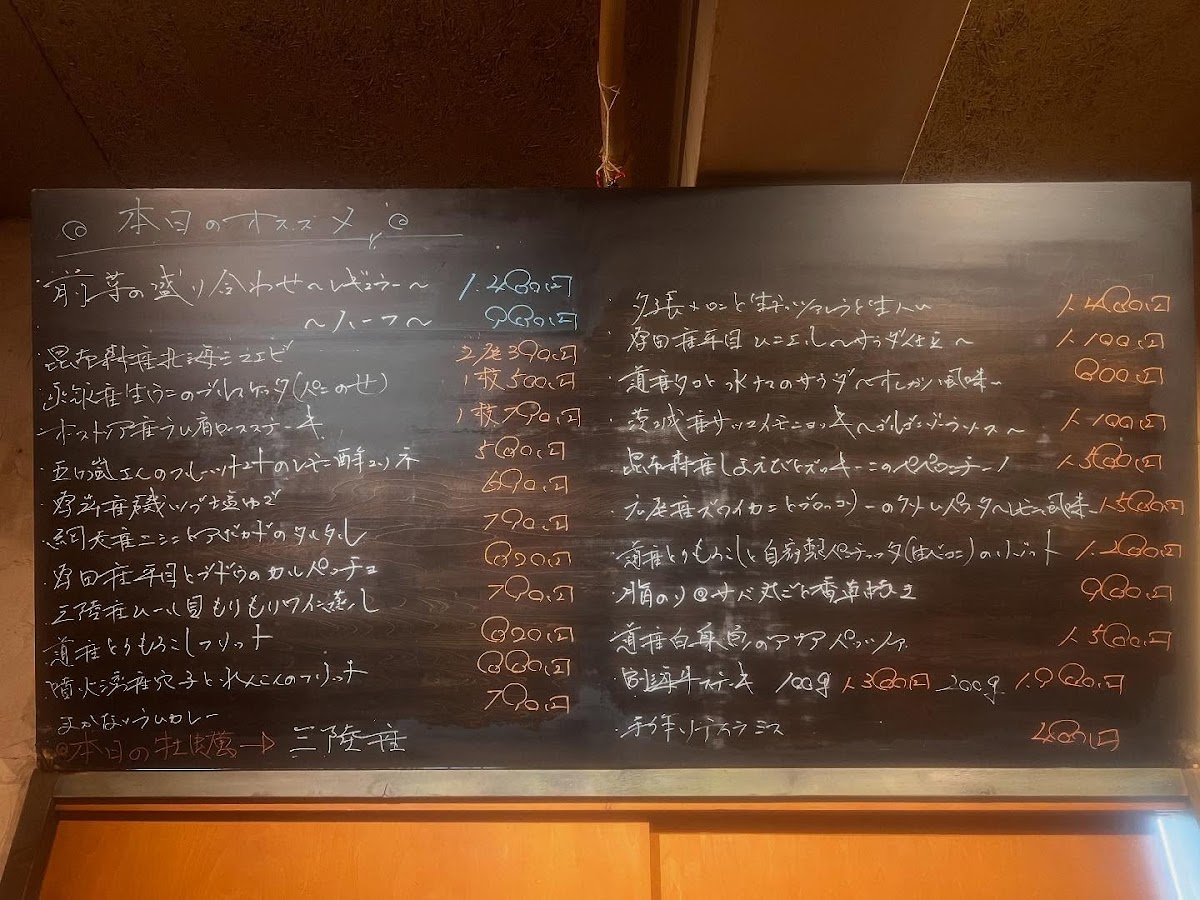 本日のオススメ
・前菜の盛り合わせ〜レギュラー〜 1.480円
〜ハーフ〜 980円
・昆布森産北海シマエビ 2尾390円
産生うにのブルスケッタ(パンのせ) 1枚500円
・オーストラリア産ラム肩ロースステーキ 1枚790円
・五十嵐さんのフルーツトマトのレモン酢マリネ 580円
・厚岸産磯ツブ塩ゆで 690円
・網走産ニシンとアボカドのタルタル 790円
・厚田産平目とブドウのカルパッチョ 820円
・三陸産ムール貝もりもりワイン蒸し 790円
・道産とうもろこしフリット 820円
・噴火湾産穴子とれんこんのフリット 880円
・まかないラムカレー 790円
◎本日の牡蠣→三陸産
・夕張メロンと生ハム 1.480円
・厚田産平目 〜サラダ仕立〜 1.100円
・道産タコと水ナスのサラダ〜オレガノ風味〜 800円
・茨城産サツマイモニョッキ〜ゴルゴンゾーラソース〜 1.100円
・昆布森産しまえびとズッキーニのペペロンチーノ 1.500円
産ズワイカニとブロッコリーのクリームパスタ〜レモン風味〜 1.580円
・道産とうもろこしと自家製パンチェッタ(生ベーコン)のリゾット 1.200円
・脂のりのサバ丸ごと香草焼き 980円
・道産白身魚のアクアパッツァ 1.500円
牛ステーキ 100g 1.380円 200g 1.980円
・手作りティラミス 480円